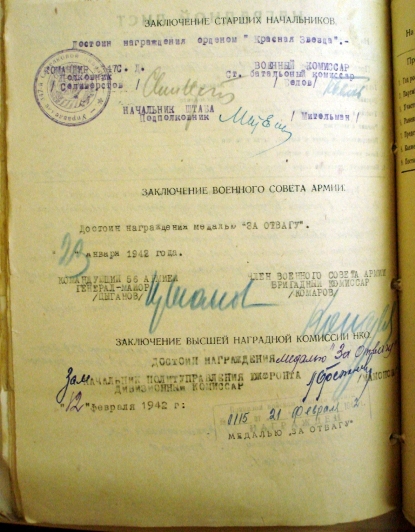 ЗАКЛЮЧЕНИЕ СТАРШИХ НАЧАЛЬНИКОВ.
Достоин награждения орденом " Красная Звезда".-
КОМАНДИР С. Д. ВОЕННЫЙ КОМИССАР
Полковник Ст. батальоный комиссар
/Селиверстов / /Белов/
НАЧАЛЬНИК ШТАБА
Подполковник / Мительман /
ЗАКЛЮЧЕНИЕ ВОЕННОГО СОВЕТА АРМИИ.
Достоин награждения медалью "ЗА ОТВАГУ".
января 1942 года.
КОМАНДУЮЩИЙ 56 АРМИЕЙ ЧЛЕН ВОЕННОГО СОВЕТА АРМИИ
ГЕНЕРАЛ-МАЙОР БРИГАДНЫЙ КОМИССАР
/ЦЫГАНОВ/ /КОМАРОВ/
ЗАКЛЮЧЕНИЕ ВЫСШЕЙ НАГРАДНОЙ КОМИССИИ НКО.
ДОСТОИН НАГРАЖДЕНИЯ медалью "За Отвагу"
Зам НАЧАЛЬНИК ПОЛИТУПРАВЛЕНИЯ ЮЖФРОНТА
ДИВИЗИОННЫЙ КОМИССАР
"12" февраля 1942 г:
0115 21 февраля 2
МЕДАЛЬЮ „ЗА ОТВАГУ"